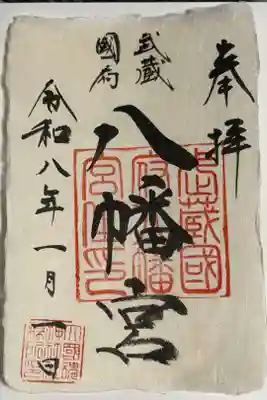 奉拝
武蔵
國府
八幡宮
令和八年一月一日
武蔵國
府八幡